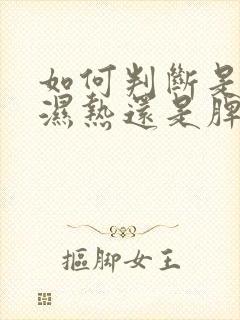 如何判斷是
濕熱還是脾
摳腳女王